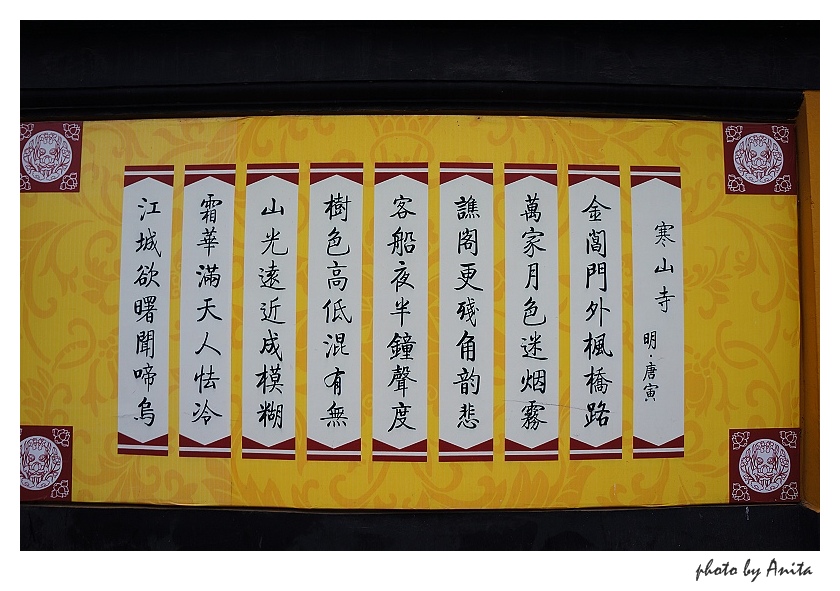 寒山寺 明·唐寅
金閶門外楓橋路
萬家月色迷烟霧
譙閣更殘角韵悲
客船夜半鐘聲度
樹色高低混有無
山光遠近成模糊
霜華滿天人怯冷
江城欲曙聞啼烏
photo by Anita